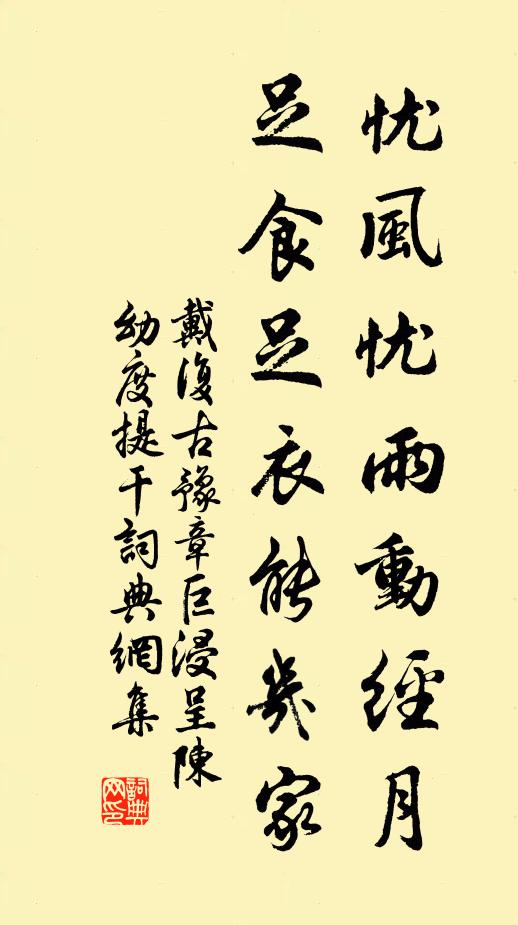 忧風忧雨動經月
足食足衣能幾家
戴復古豫章巨浸呈陳
幼度提干詞典網集
詞典
网印